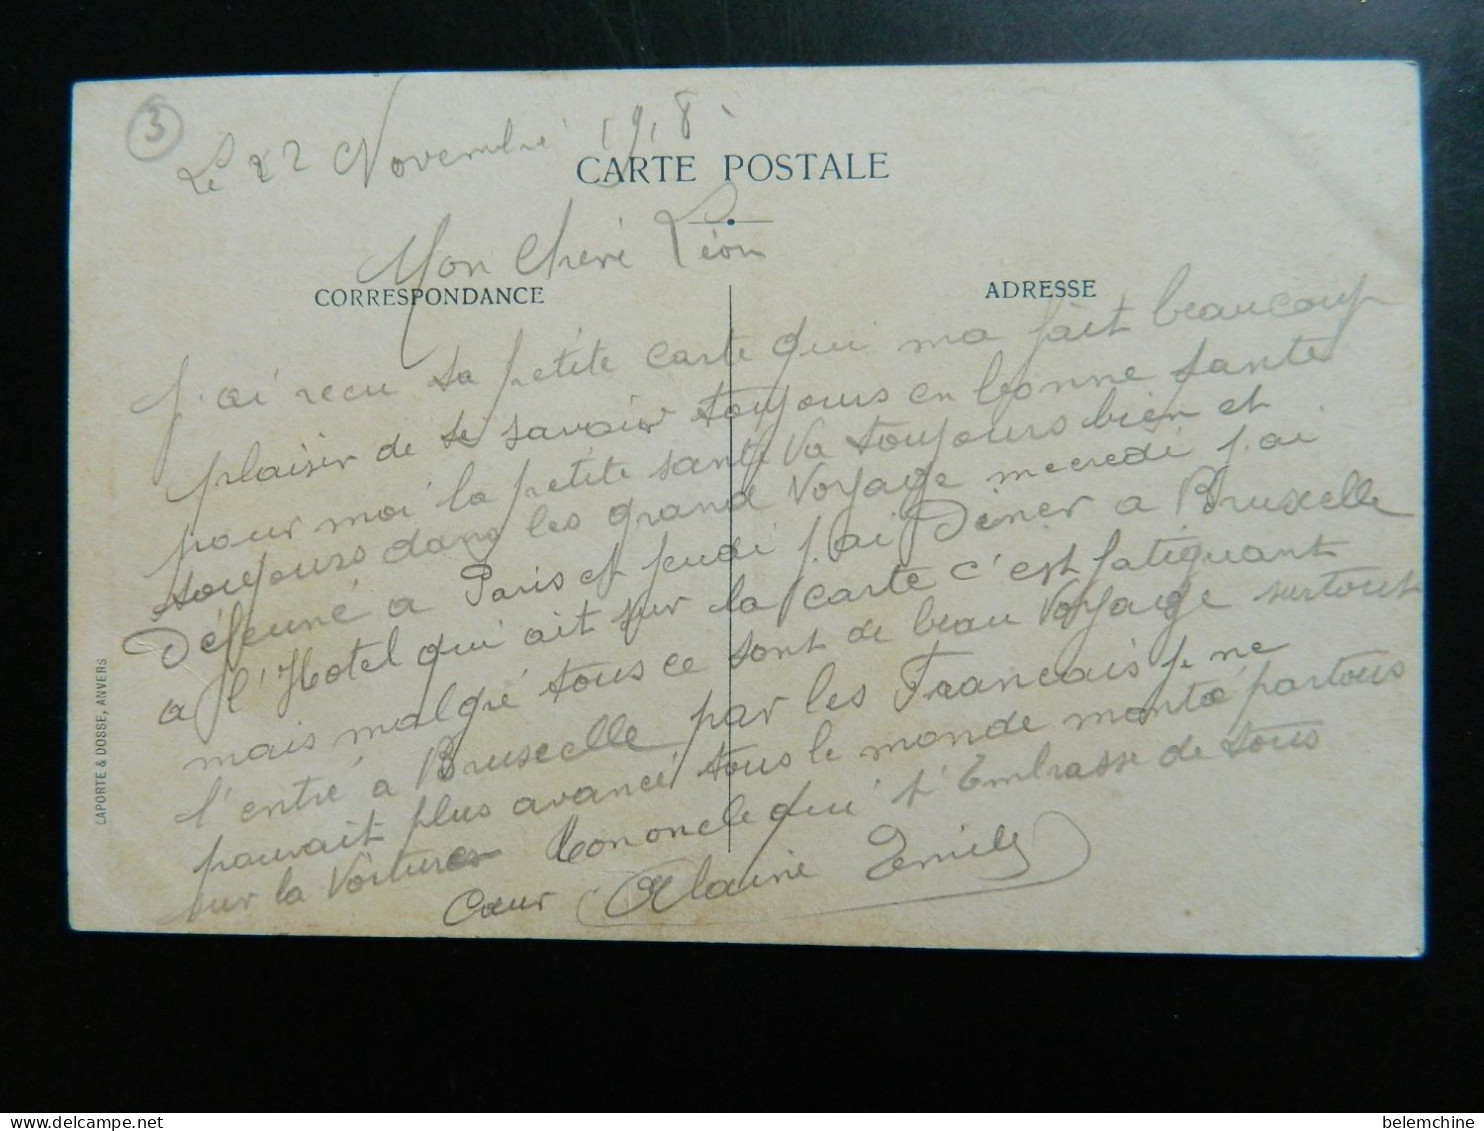 3
Le 22 Novembre 1918
CARTE POSTALE
Mon Chere Léon
CORRESPONDANCE
ADRESSE
J'ai recu ta petite carte qui ma fait beaucoup
plaisir de te savoir toujours en bonne sante
pour moi la petite sante va toujours bien et
toujours dans les grand voyage mecredi j'ai
Déjeuné a Paris et jeudi j'ai Diner a Bruxelle
a l'Hotel qui ait sur la carte c'est fatiguant
mais malgré tous ce sont de beau voyage surtout
l'entré a Bruxelle par les Francais je ne
pouvait plus avancé tous le monde monté partous
sur la voiture Tononcle qui t'Embrasse de tous
Cœur Emile
LAPORTE & DOSSE, ANVERS
belemchine